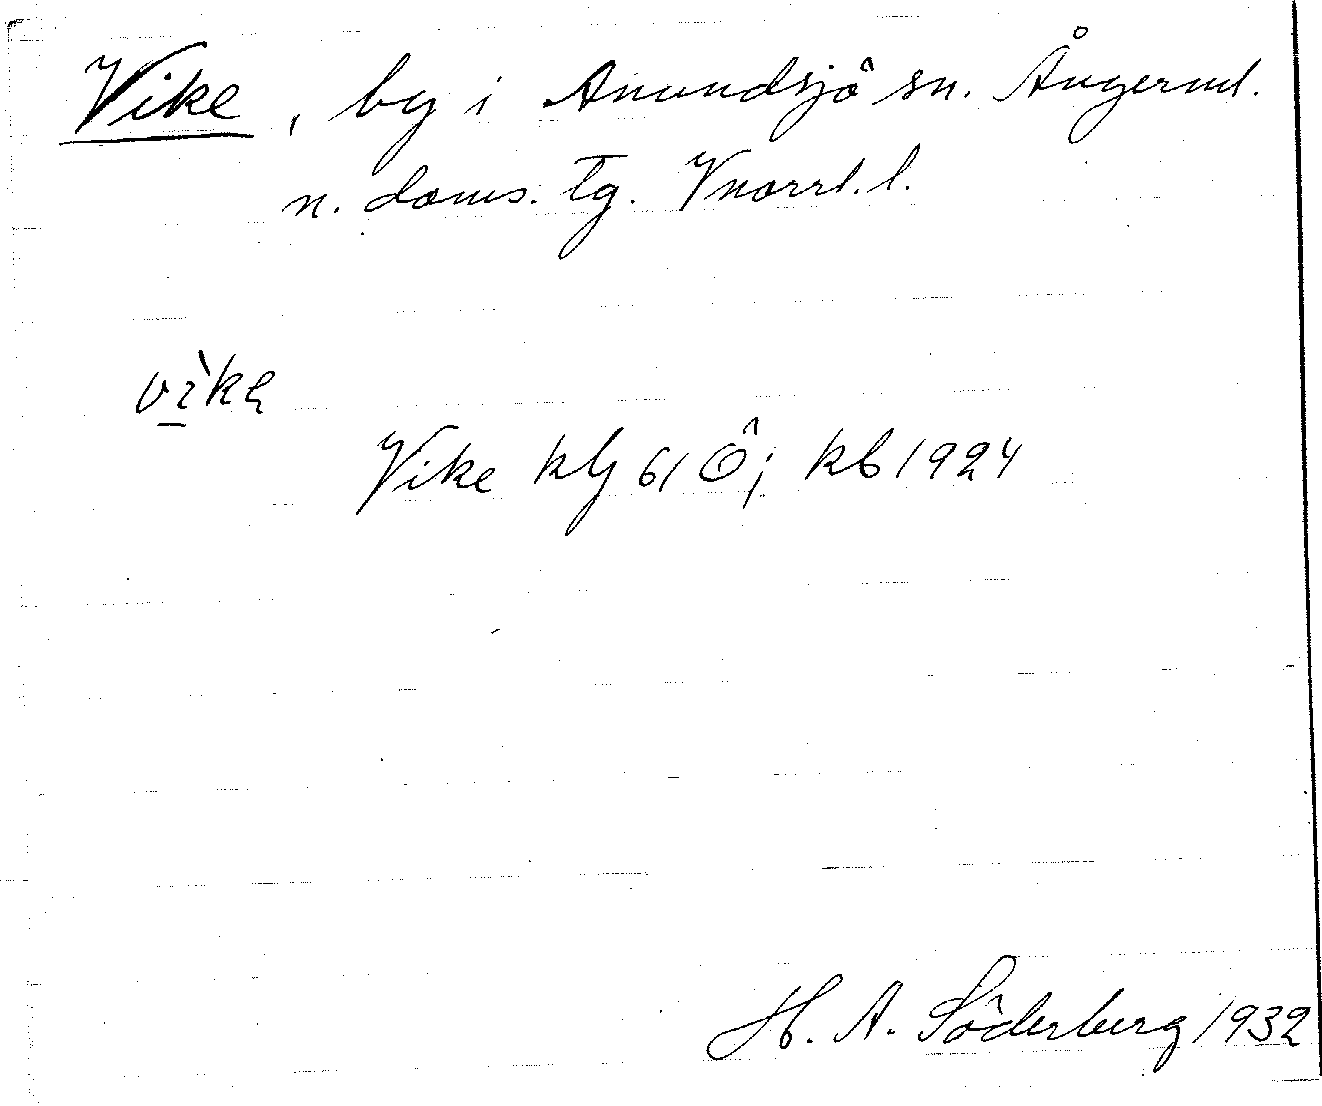 Vike, by i Anundsjö sn. Ångerml.
n. doms. tg. Vnorrl. l.
vìkę
Vike kbj 61 Ö; kb 1924
H. A. Söderberg 1932